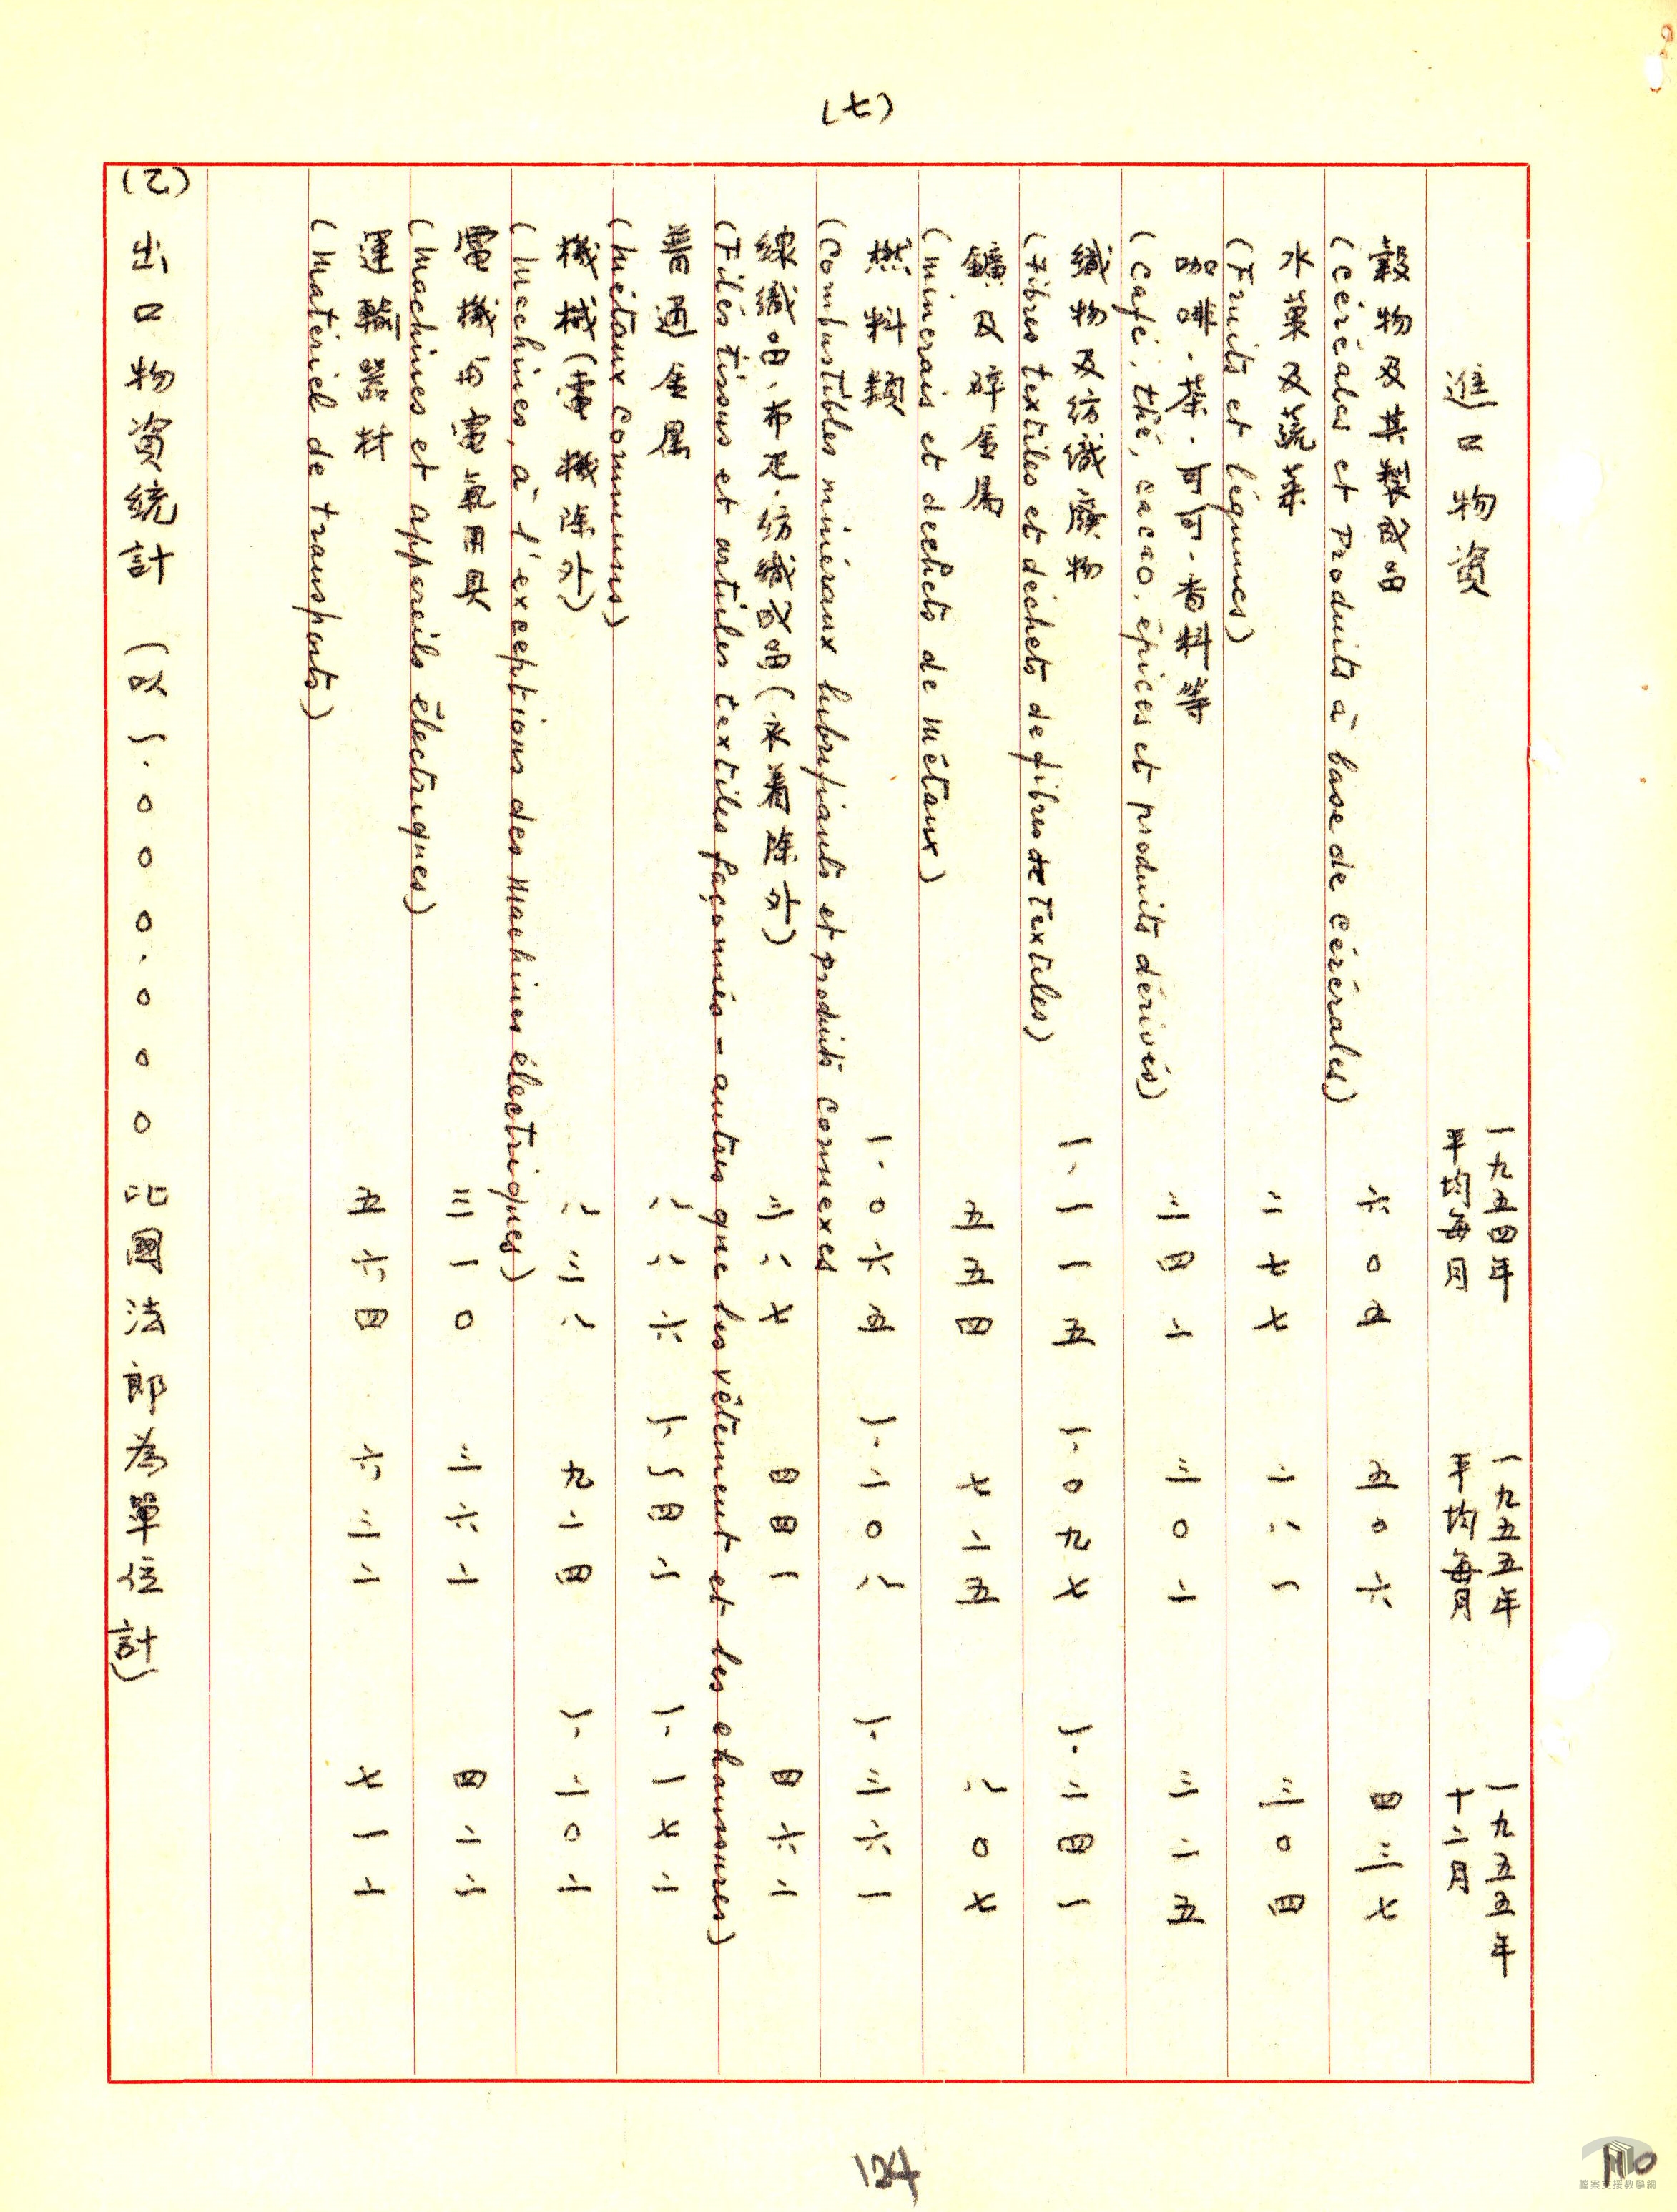 (七)
進口物資 一九五四年平均每月 一九五五年平均每月 一九五五年十二月
穀物及其製成品 六〇五 五〇六 四三七
(Céréales et Produits à base de Cérérales)
水菓及蔬菜 二七七 二八一 三〇四
(Fruits et légumes)
咖啡．茶．可可．香料等 三四二 三〇二 三二五
(Café, thé, cacao, épices et produits dérivés)
纖物及紡織廢物 一．一一五 一．〇九七 一．二四一
(Fibres textiles et déchets de fibres de Textiles)
鑛及碎金属 五五四 七二五 八〇七
(minerais et dechets de métaux)
燃料類 一．〇六五 一．二〇八 一．三六一
(Combustibles minéraux lubrifiants et produits connexes
線織品．布疋．紡織成品(衣着除外) 三八七 四四一 四六二
(Filés tissus et articles textiles façonnés - autres que les vêtement et les chaussures)
普通金属 八八六 一．一四二 一．一七二
(Métaux Communs)
機械(電機除外) 八三八 九二四 一．二〇二
(Machines, à l'exceptions des Machines électriques)
電機与電氣用具 三一〇 三六二 四二二
(Machines et appareils électriques)
運輸器材 五六四 六三二 七一二
(Matériel de transports)
(乙)出口物資統計(以一．〇〇〇．〇〇〇比國法郎為單位計)
124
110
檔案支援教學網